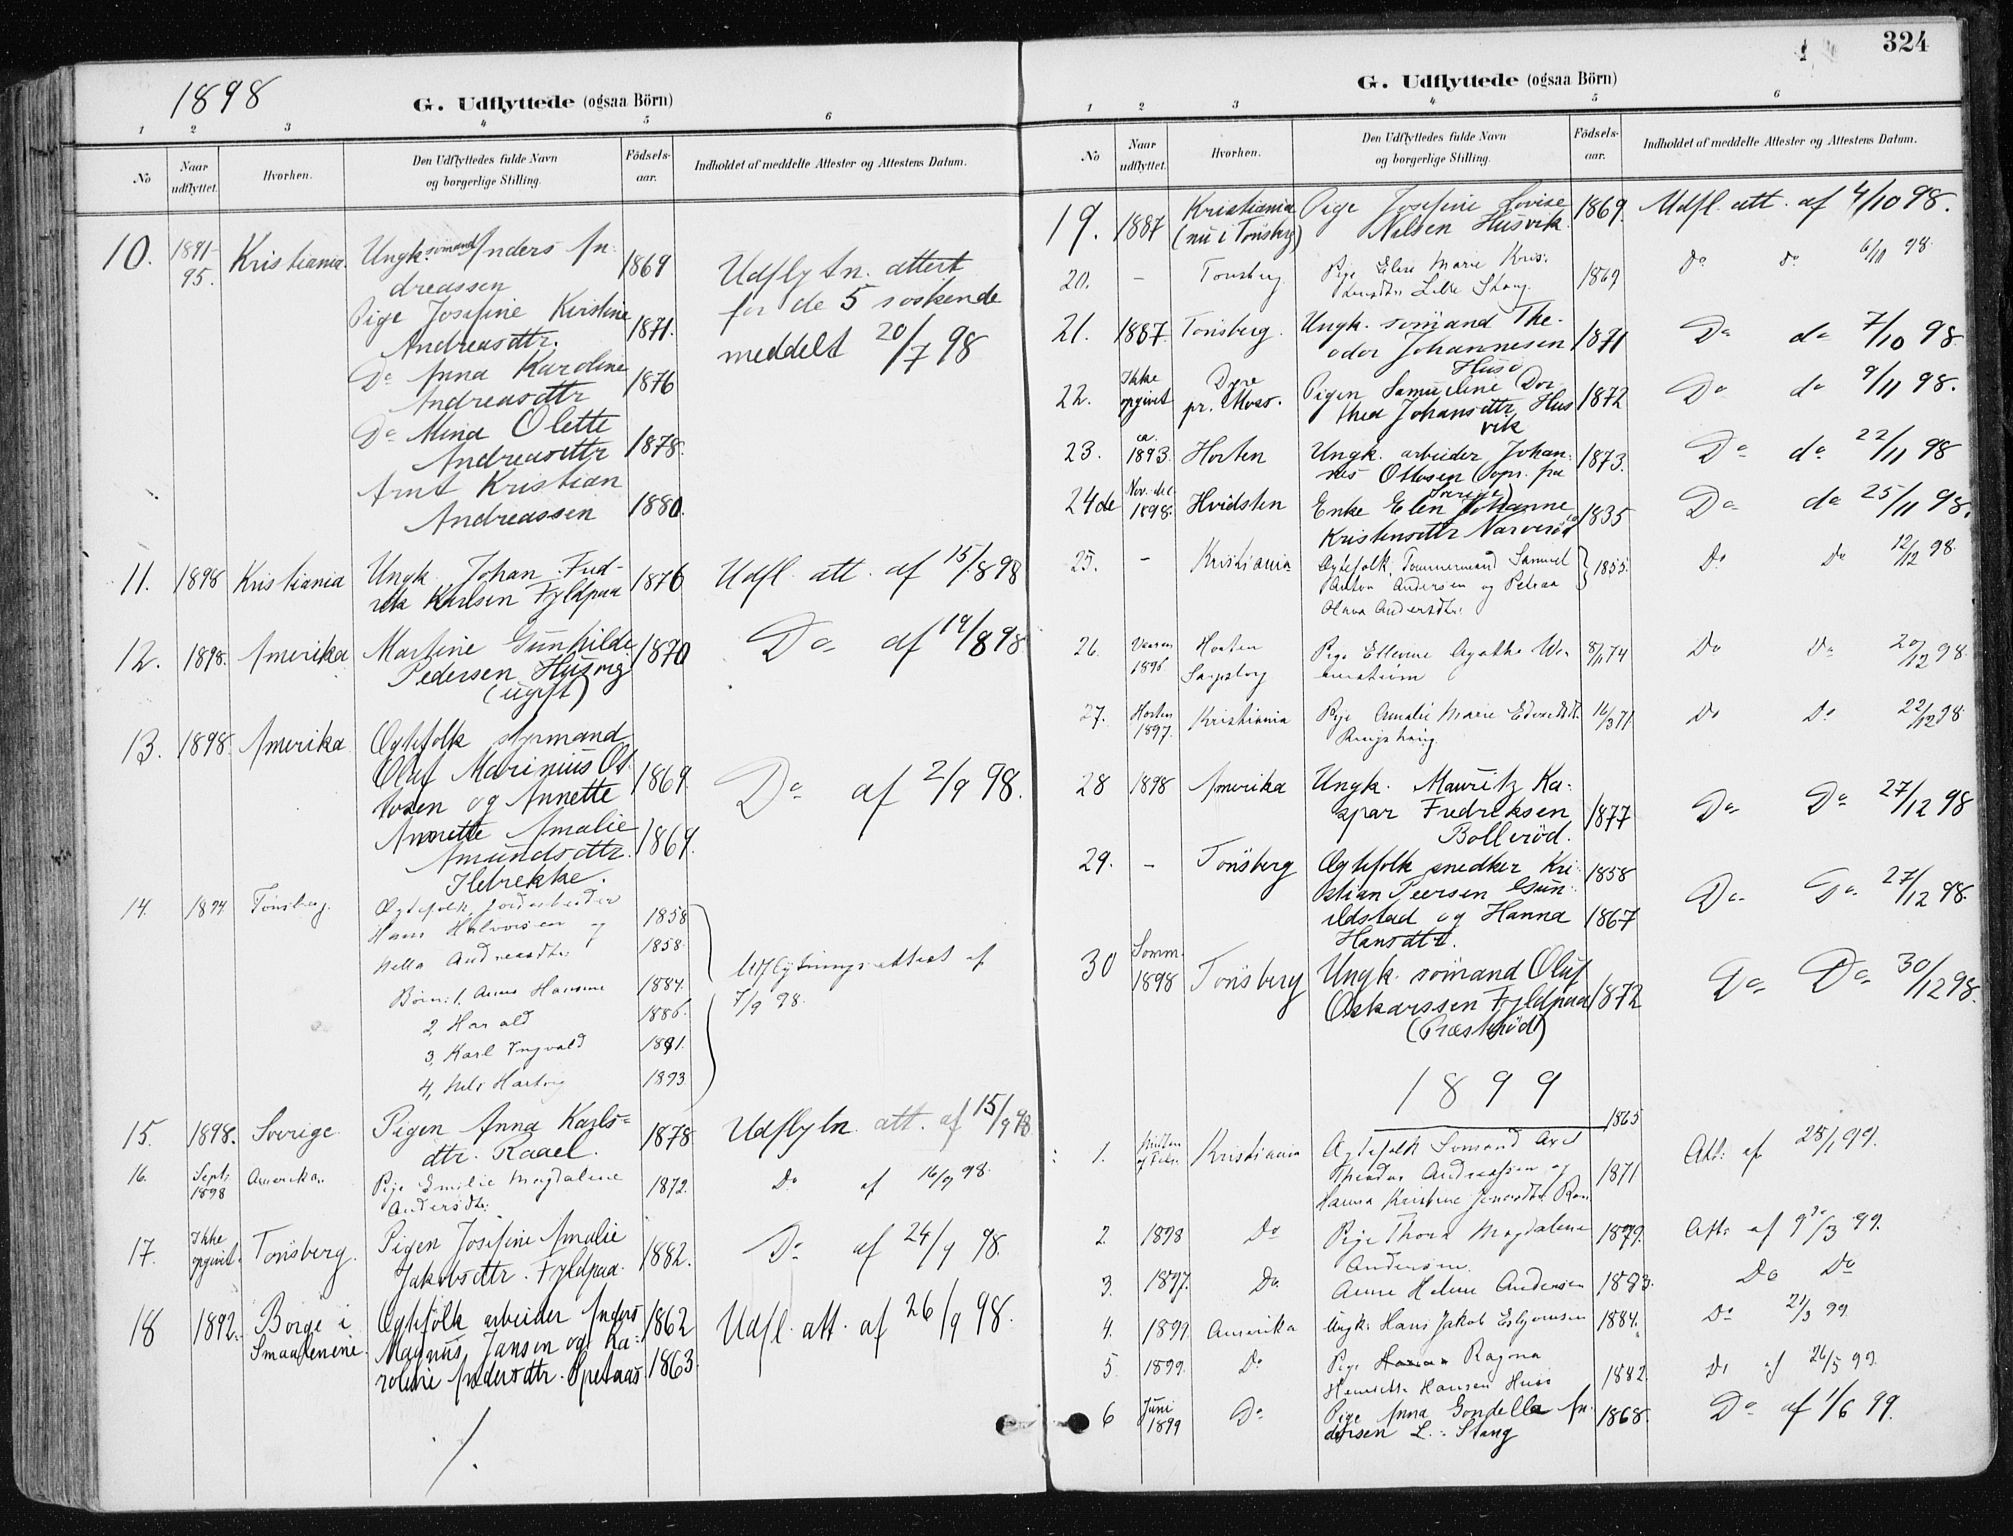 1898
G. Udflyttede (ogsaa Börn)
1 2 3 4 5 6
No
Naar udflyttet.
Hvorhen.
Den Udflyttedes fulde Navn og borgerlige Stilling.
Födsels-aar.
Indholdet af meddelte Attester og Attestens Datum.
10. 1891-95. Kristiania. Ungk. sömand Anders An-
dreassen 1869
Pige Josefine Kirstine
Andreasdtr. 1871.
Do Anna Karoline
Andreasdtr 1876
Do Mina Olette
Andreasdtr 1878.
Arnt Kristian
Andreassen 1880.
Udflytn. attest
for de 5 söskende
meddelt 20/7 98
11. 1898 Kristiania Ungk. Johan Fred-
rik Karlsen Fyldpaa 1876 Udfl. att. af 15/8 98
12. 1898. Amerika Martine Gunhilde
Pedersen Husvig 1870 Do af 19/8 98
(ugift)
13. 1898. Amerika Ægtefolk styrmand
Oluf Marinius Ot-
tosen og Annette 1869. Do af 2/9 98.
Annette Amalie
Amundsdtr. 1869.
Ilebrekke.
14. 1894 Tönsberg. Ægtefolk Jordarbeider
Hans Halvorsen og 1858
Andreasdtr. 1858.
Börn: 1, Hansine 1884.
2, Harald 1886.
3, Karl Ingvald 1891.
4, Nils Hartvig 1893
Udflytningsattest af
7/9 98.
15. 1898. Sverige Pigen Anna Karls-
dtr. Raael. 1878 Udflytn. att. af 15/9 98
16. Sept. 1898 Amerika. Pige Emilie Magdalene
Andersdtr. 1872. Do af 16/9 98.
17. Ikke opgivet. Tönsberg. Pigen Josefine Amalie
Jakobsdtr. Fyldpaa. 1882. Do af 24/9 98.
18 1892. Borge i Smaalenene. Ægtefolk arbeider Anders 1862
Magnus Jansen og Ka-
roline Andersdtr. 1863. Udfl. att. af 26/9 98.
324
G. Udflyttede (ogsaa Börn)
1 2 3 4 5 6
No
Naar udflyttet.
Hvorhen.
Den Udflyttedes fulde Navn og borgerlige Stilling.
Födsels-aar.
Indholdet af meddelte Attester og Attestens Datum.
19. 1887 Kristiania (nu i Tönsberg) Pige Josefine Lovise
Nilsen Husvik. 1869. Udfl. att. af 4/10 98.
20. - Tönsberg Pige Elise Marie Kris-
Lille Stang. 1869 Do do 6/10 98.
21. 1887. Tönsberg. Ungk. sömand The-
odor Johannesen 1871 Do do 7/10 98
Husö
22. Ikke opgivet pr. Moss. Pigen Samueline Dor-
thea Johansdtr. Hus 1872 Do do 9/11 98.
vik
23. ca. 1893. Horten Ungk. arbeider Johan-
nes Ottosen (opr. fra 1873. Do do 22/11 98
Sverige)
24de Nov. dec. 1898. Hvidsten Enke Elen Johanne
Kristensdtr Narveröd 1835 Do do 25/11 98.
25. - Kristiania Ægtefolk Tömmermand Samuel
Anton Andersen og Petrea 1855. Do Do 12/12 98.
Olava Andersdtr.
26. Vaaren 1896 Horten Sarpsborg Pige Agathe 8/11 74 Do Do 20/12 98.
27. Hösten 1897. Kristiania Pige Amalie Marie Edvardsdtr.
Ringshaug. 16/3 71 Do Do 22/12 98.
28 1898 Amerika Ungk. Mauritz Ka-
spar Fredriksen 1877 Do Do 27/12 98
Bolleröd.
29. - Tönsberg Ægtefolk snedker Kri- 1858
stian Peersen Gun-
ildstad og Hanna 1867 Do Do 27/12 98.
Hansdtr.
30 Somm. 1898 Tönsberg Ungk. sömand Oluf
Oskarssen Fyldpaa 1872 Do Do 30/12 98.
(Præsteröd)
1899
1. Kristiania Ægtefolk Sömand Axel 1865
Theodor Andreassen og 1871 Att. af 25/1 99.
Hanna Kristine
2 1898 Do Pige Thora Magdalene
Andersen 1879. Att. af 3 99.
3. 1897. Do Anne Helene Andersen 1883. Do Do
4. 1899. Amerika Ungk. Hans Jakob 1884. Do 21/3 99
5 1899. Do Pige Ragna
Hansen Husö 1882. Do af 26/5 99.
6 Juni 1899 Do Pige Anna Gondella An-
dersen L. Stang 1868. Do af 1/6 99.